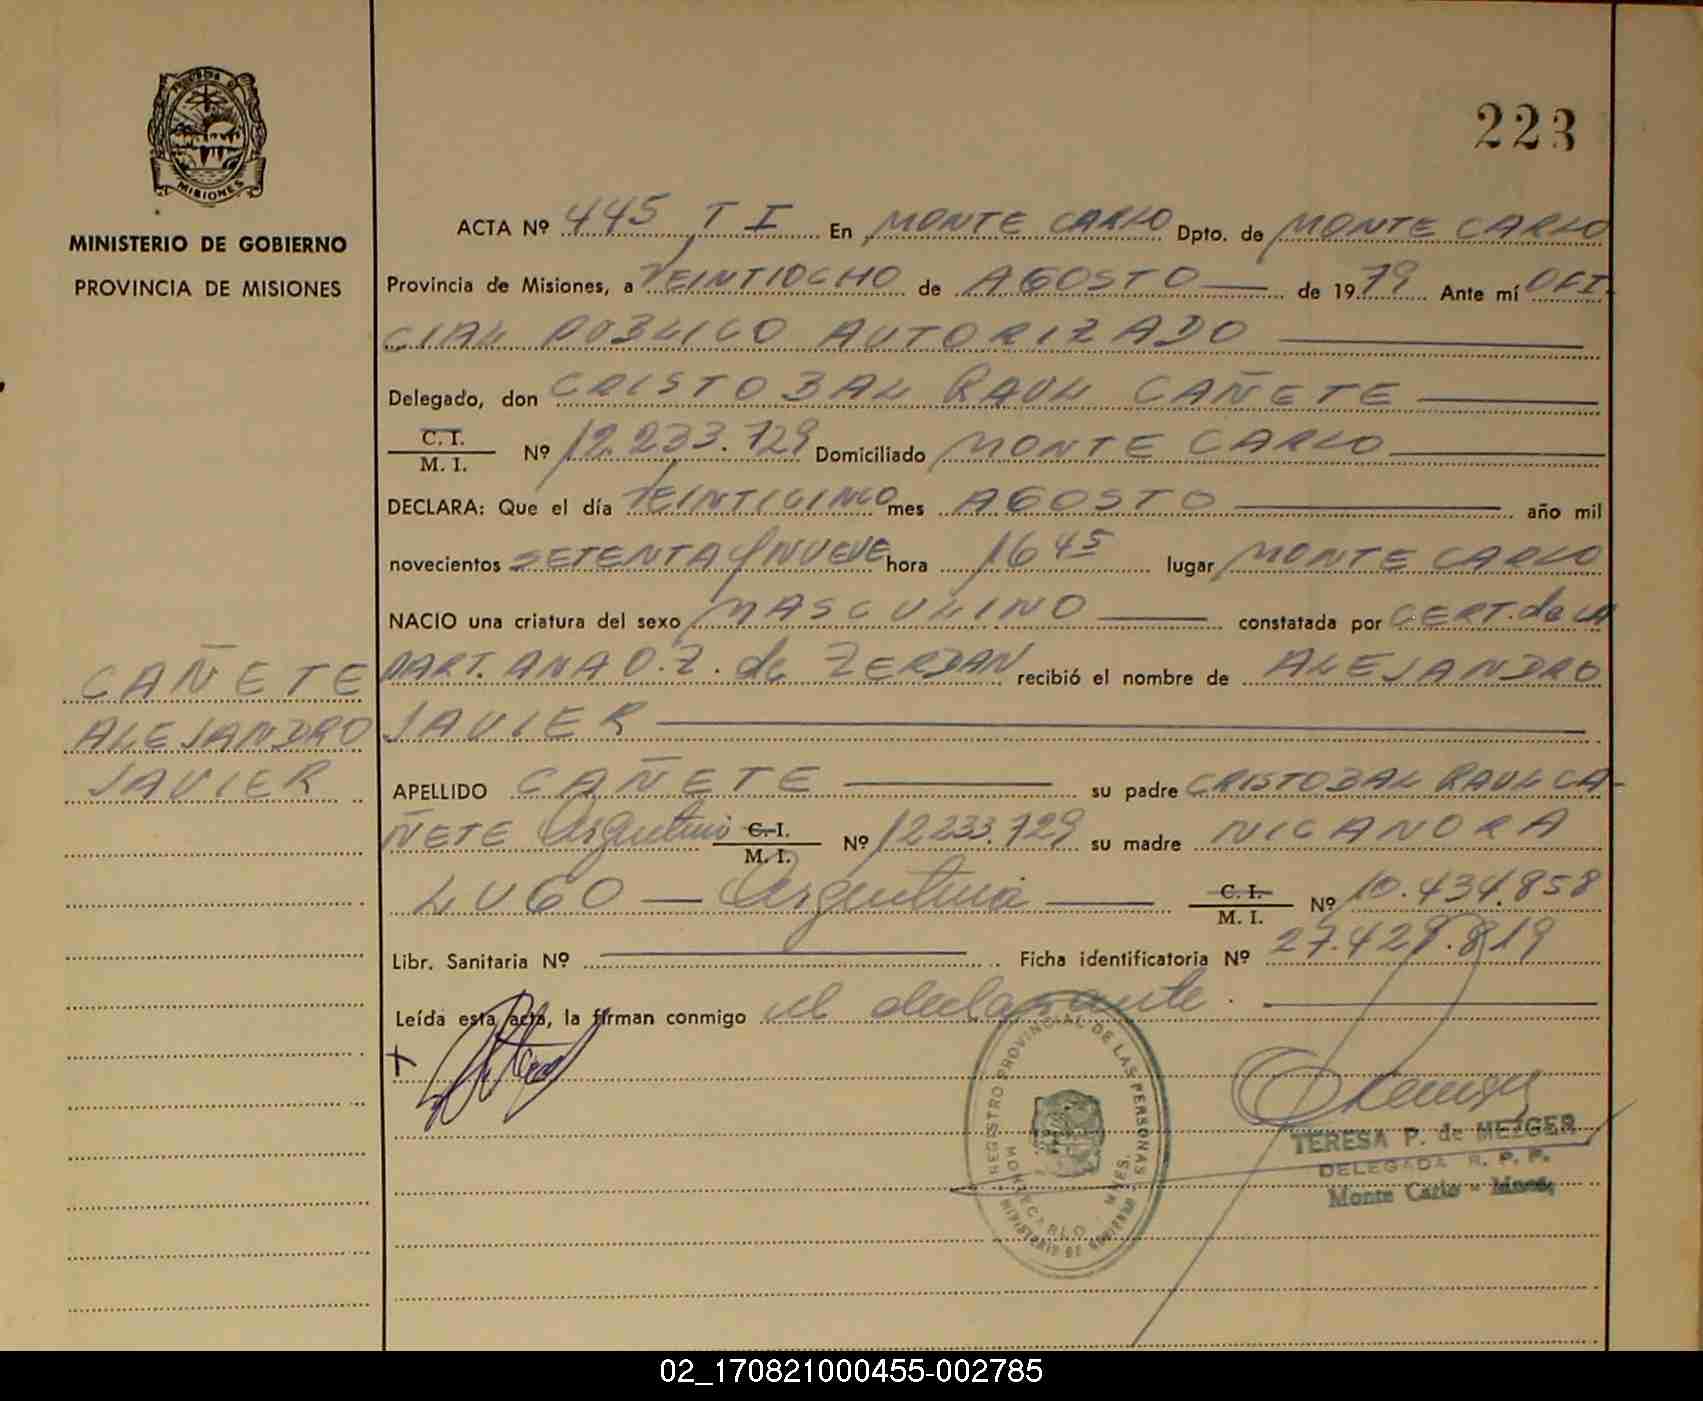 223
MISIONES
MINISTERIO DE GOBIERNO
PROVINCIA DE MISIONES
ACTA Nº 445 T I En MONTE CARLO Dpto. de MONTE CARLO
Provincia de Misiones, a VEINTIOCHO de AGOSTO de 1979 Ante mí OFI-
CIAL PUBLICO AUTORIZADO
Delegado, don CRISTOBAL RAUL CAÑETE
C. I.
M. I. Nº 12.233.729 Domiciliado MONTE CARLO
DECLARA: Que el día VEINTICINCO mes AGOSTO año mil
novecientos SETENTA Y NUEVE hora 16 45 lugar MONTE CARLO
NACIO una criatura del sexo MASCULINO constatada por CERT. de LA
PART. ANA O. Z. de ZERDAN recibió el nombre de ALEJANDRO
JAVIER
CAÑETE
ALEJANDRO
JAVIER
APELLIDO CAÑETE su padre CRISTOBAL RAUL CA-
ÑETE Argentino C. I. M. I. Nº 12.233.729 su madre NICANORA
LUGO — Argentina — C. I. M. I. Nº 10.434.858
Libr. Sanitaria Nº Ficha identificatoria Nº 27.429.819
Leída esta acta, la firman conmigo el declarante.
REGISTRO PROVINCIAL DE LAS PERSONAS
MONTECARLO - MNES.
MINISTERIO DE GOBIERNO
TERESA P. de MEZGER
DELEGADA R. P. P.
Monte Carlo - Mnes.
02_170821000455-002785